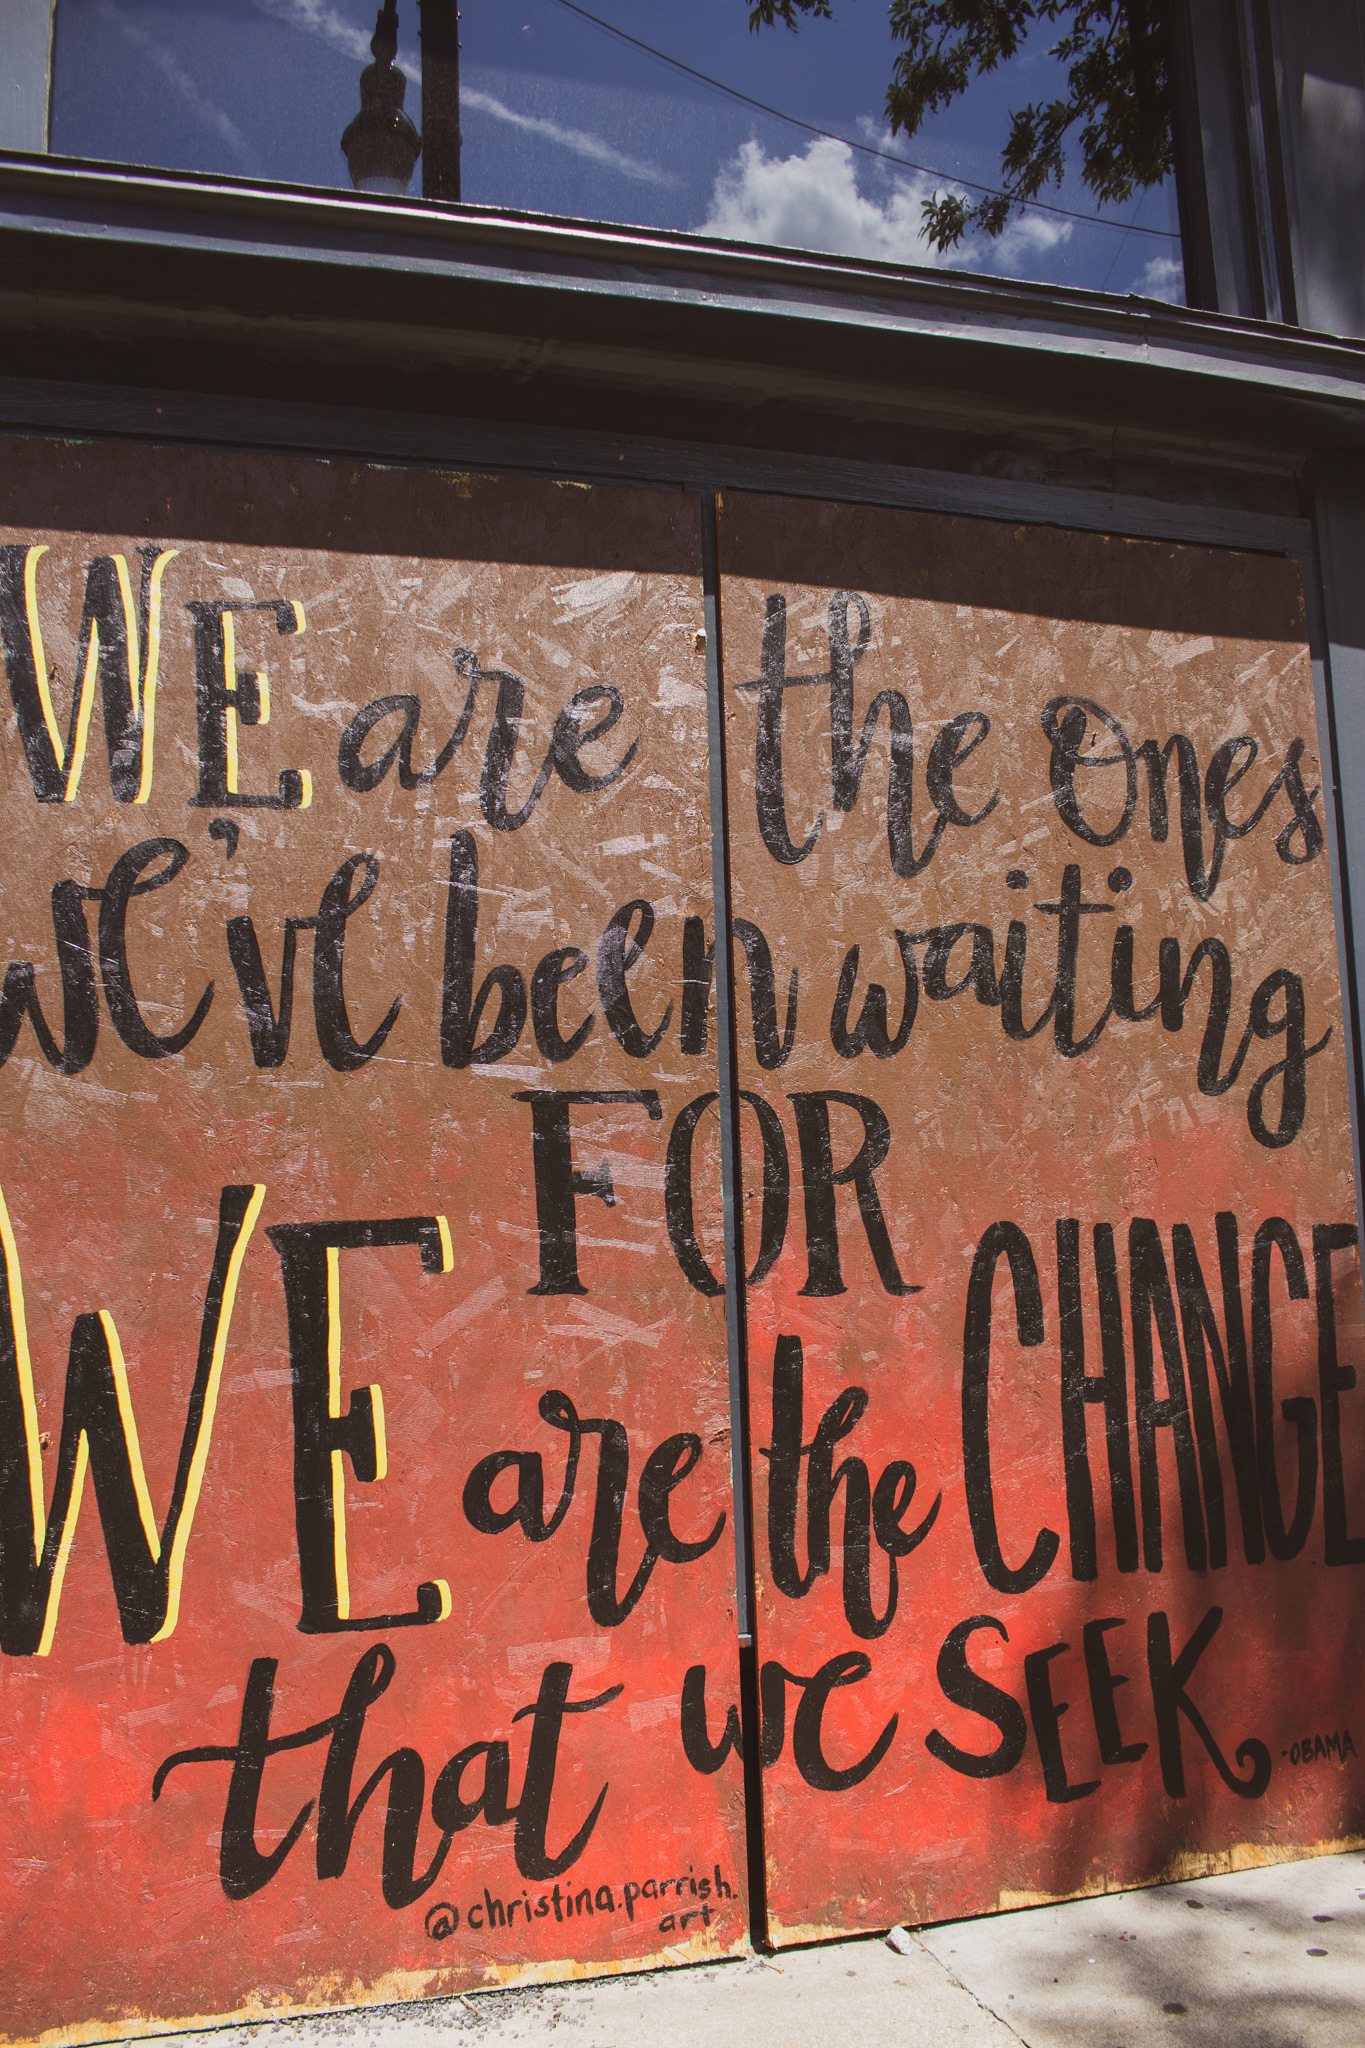 WE are the Ones
we've been waiting
FOR
WE are the CHANGE
that we SEEK
-OBAMA
@christina.parrish.
art